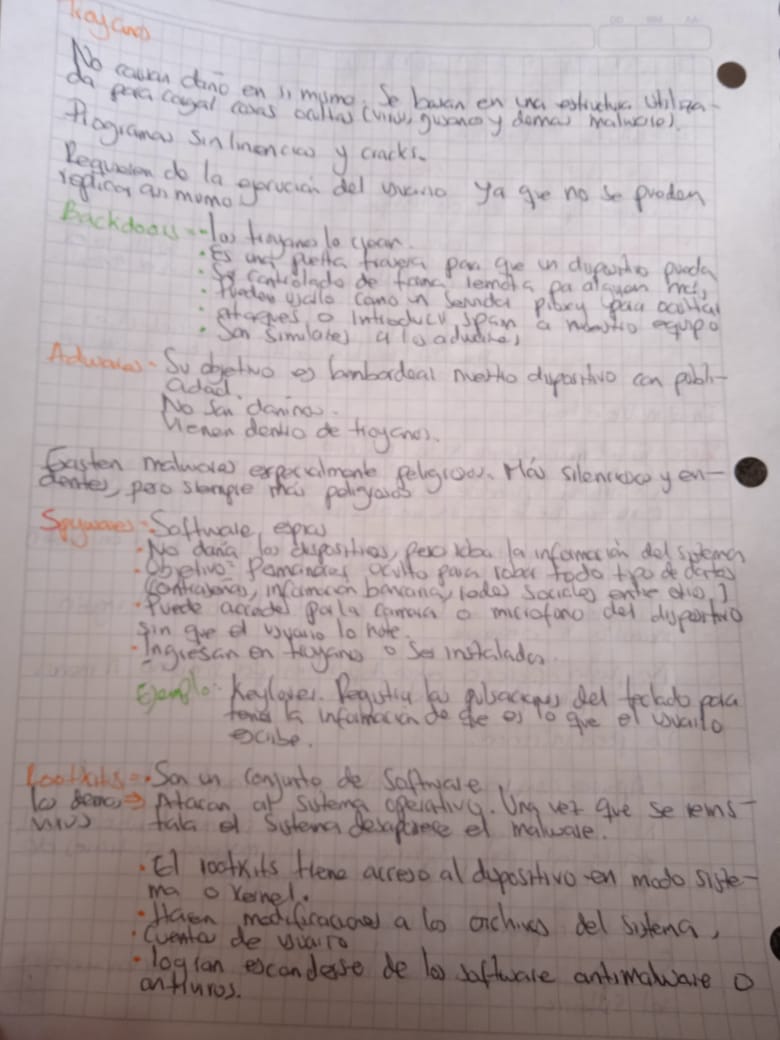 Troyanos
No causan daño en si mismo. Se basan en una estructura utiliza-
da para cargar cosas ocultas (virus, gusanos y demas malware).
Programas sin licencias y cracks.
Requieren de la ejecución del usuario ya que no se pueden
replicar asi mismo
Backdoors -- los troyanos lo crean.
• Es una puerta trasera para que un dispositivo pueda
• Ser controlado de forma remota pa alguien más,
• Pueden usarlo como un servidor proxy para ocultar
• ataques o introducir spam a nuestro equipo
• Son similares a los adwares
Adwares - Su objetivo es bombardear nuestro dispositivo con publi-
cidad.
No son dañinos.
Vienen dentro de troyanos.
Existen malwares especialmente peligrosos. Más silencioso y
dentes, pero siempre más peligrosos
Spywares - Software espías
• No daña los dispositivos, pero roba la información del sistema
• Objetivo: Pemanecer oculto para robar todo tipo de datos
(contraseñas, información bancaria, redes sociales entre otro,)
• Puede acceder por la camara o microfono del dispositivo
sin que el usuario lo note.
• Ingresan en troyanos o ser instalados.
Ejemplo: Keyloger. Registra las pulsaciones del teclado para
tener la información de que es lo que el usuario
escribe.
Rootkits = • Son un conjunto de software
lo demas virus ⇒ Atacan al sistema operativo. Una vez que se reins-
tala el sistema desaparece el malware.
• El rootkits tiene acceso al dispositivo en modo siste-
ma o kernel.
• Hacen modificaciones a los archivos del sistema,
• cuenta de usuario
• logran esconderse de los software antimalware o
antivirus.